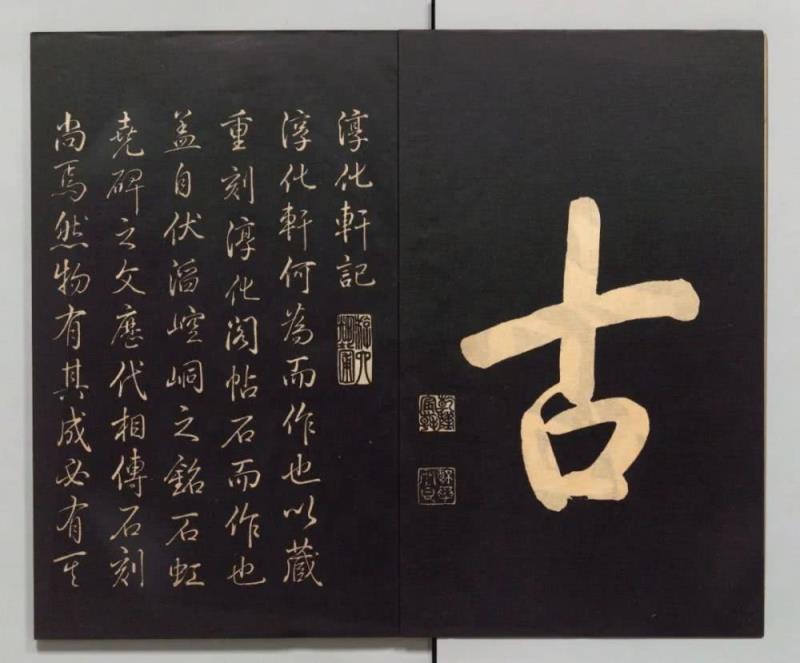 古
淳化軒記
淳化軒何為而作也以藏
重刻淳化閣帖石而作也
盖自伏滔崆峒之銘石虹
堯碑之文應代相傳石刻
尚焉然物有其成必有其